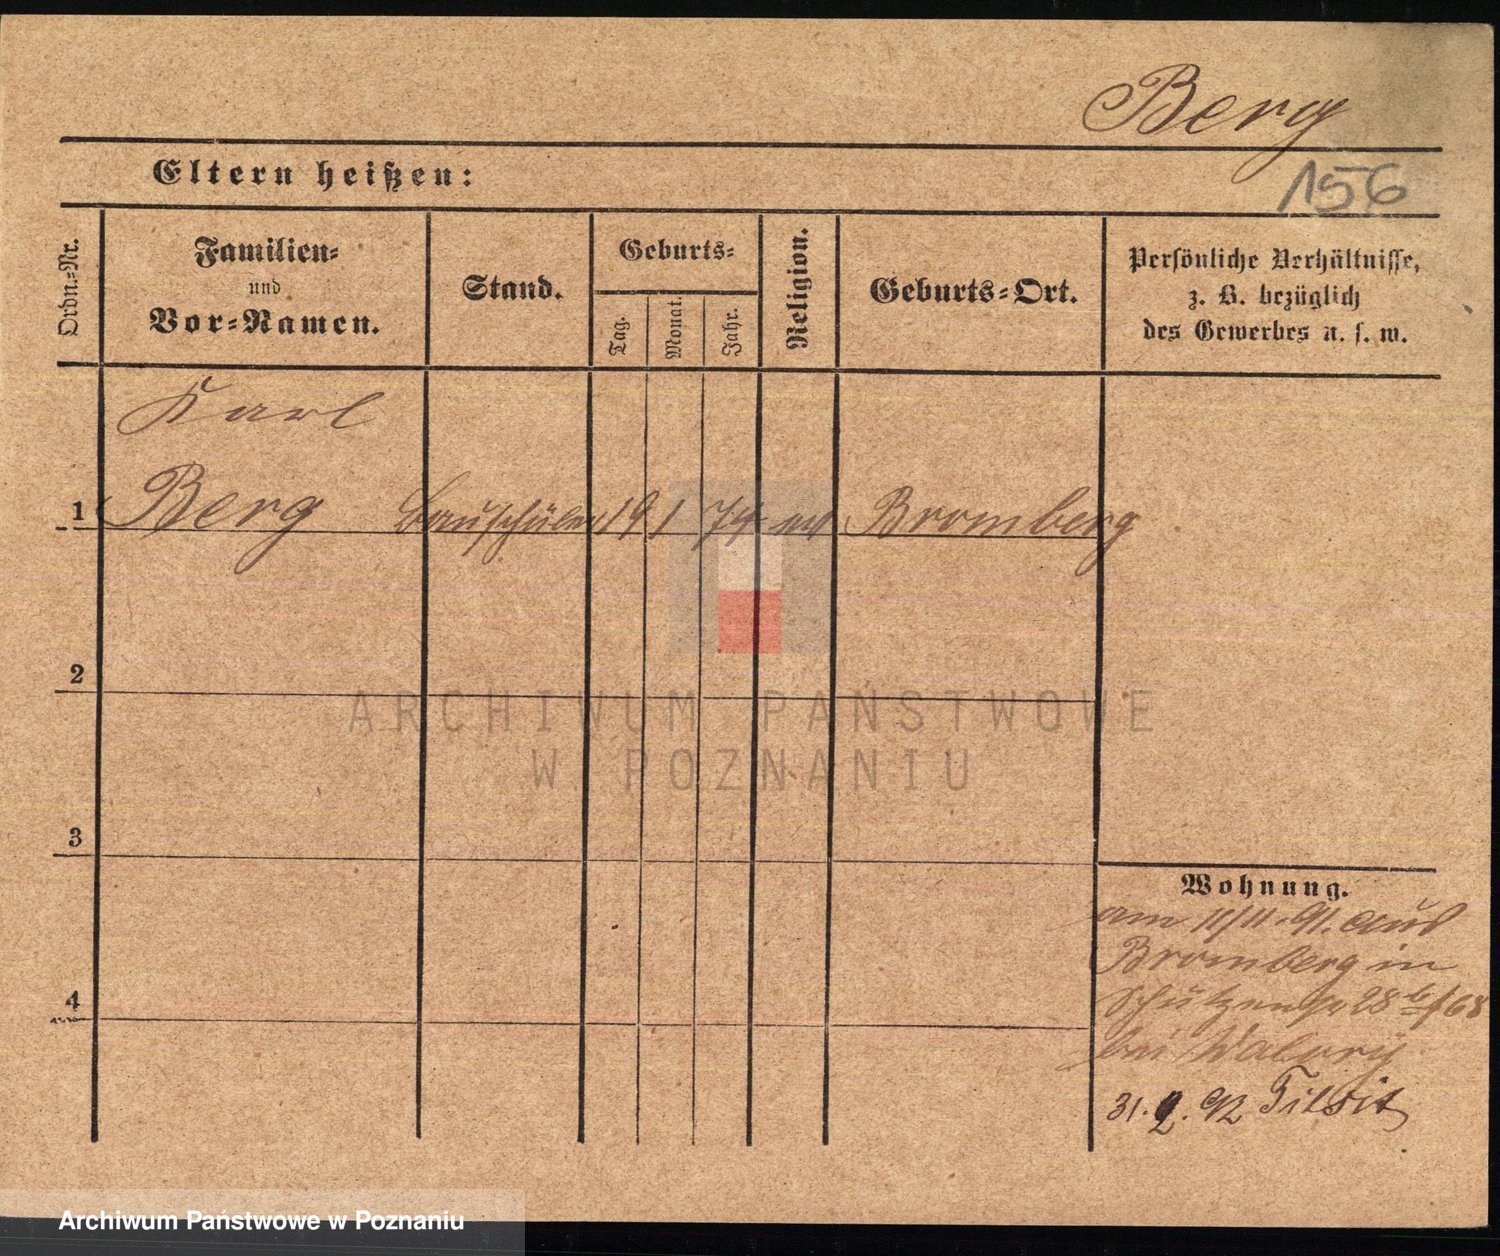 Berg
156
Eltern heißen:
Ordn.-Nr.
Familien-
und
Vor-Namen.
Stand.
Geburts-
Tag.
Monat.
Jahr.
Religion.
Geburts-Ort.
Persönliche Verhältnisse,
z. B. bezüglich
des Gewerbes u. s. w.
Karl
1 Berg Bauschüler 19 1 74 ev Bromberg
2
3
4
Wohnung.
am 11/11. 91. aus
Bromberg in
Schützenstr 28 b/68
bei
31. 92 Tilsit
ARCHIWUM PAŃSTWOWE
W POZNANIU
Archiwum Państwowe w Poznaniu